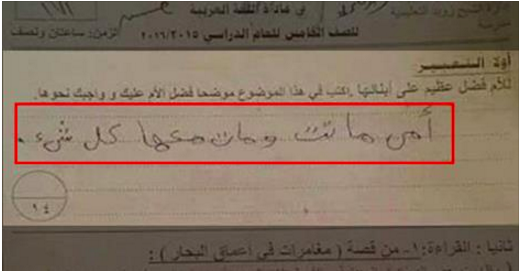 إدارة الشيخ زويد التعليمية
في مادة اللغة العربية
للصف الخامس للعام الدراسي ٢٠١٦/٢٠١٥
الزمن: ساعتان ونصف
أولا التعبير
للأم فضل عظيم على أبنائها .اكتب في هذا الموضوع موضحا فضل الأم عليك و واجبك نحوها.
أمي ماتت ومات معها كل شيء .
١٤
ثانيا : القراءة: ١- من قصة ( مغامرات في أعماق البحار ) :